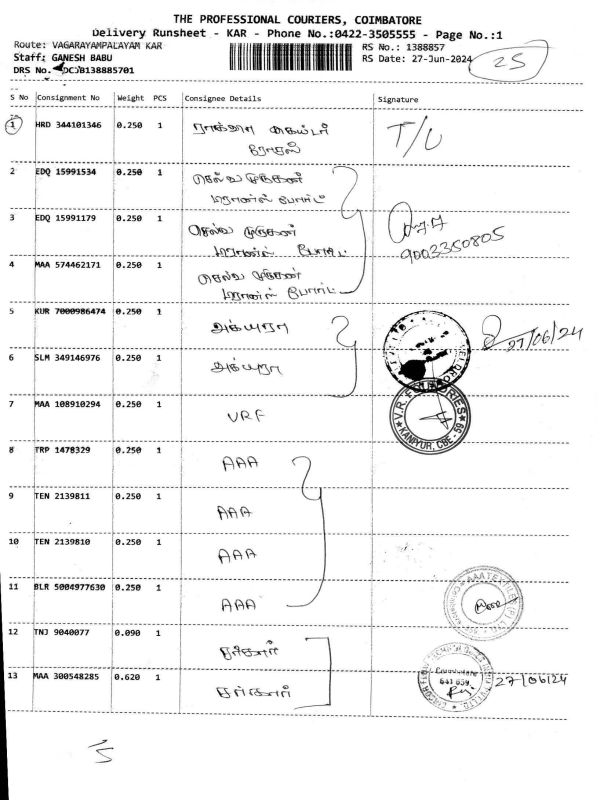 THE PROFESSIONAL COURIERS, COIMBATORE
Delivery Runsheet - KAR - Phone No.:0422-3505555 - Page No.:1
Route: VAGARAYAMPALAYAM KAR
RS No.: 1388857
Staff: GANESH BABU
RS Date: 27-Jun-2024
25
DRS No.
S No Consignment No Weight PCS Consignee Details Signature
1 HRD 344101346 0.250 1 T/U
2 EDQ 15991534 0.250 1 செல்வ முருகன்
டிரான்ஸ் போர்ட்
3 EDQ 15991179 0.250 1 செல்வ முருகன்
டிரான்ஸ் போர்ட்
9003350805
4 MAA 574462171 0.250 1 செல்வ முருகன்
டிரான்ஸ் போர்ட்
5 KUR 7000986474 0.250 1
27/06/24
6 SLM 349146976 0.250 1
7 MAA 108910294 0.250 1 VRF
V.R. FOUNDRIES
KANIYUR, CBE - 59
8 TRP 1478329 0.250 1 AAA
9 TEN 2139811 0.250 1 AAA
10 TEN 2139810 0.250 1 AAA
11 BLR 5004977630 0.250 1 AAA
AAA TEXTILES (P) LTD
12 TNJ 9040077 0.090 1
13 MAA 300548285 0.620 1
Coimbatore
641 659
27/06/24